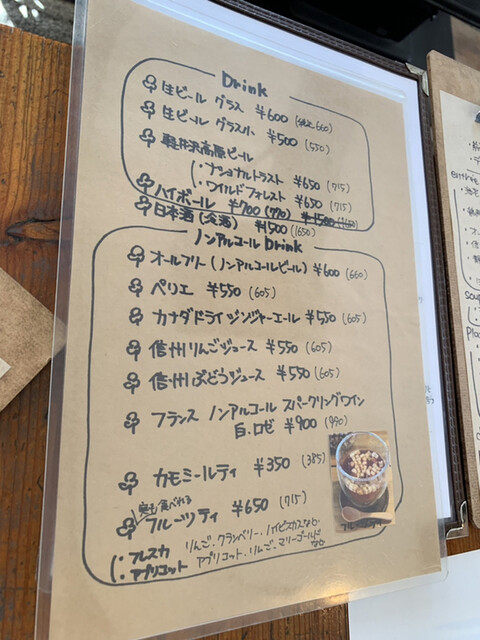 Drink
生ビール グラス ¥600 (税込660)
生ビール グラス小 ¥500 (550)
軽井沢高原ビール
・ナショナルトラスト ¥650 (715)
・ワイルドフォレスト ¥650 (715)
ハイボール ¥700 (770)
日本酒 ¥1500 (1650)
ノンアルコール Drink
オールフリー (ノンアルコールビール) ¥600 (660)
ペリエ ¥550 (605)
カナダドライ ジンジャーエール ¥550 (605)
信州りんごジュース ¥550 (605)
信州ぶどうジュース ¥550 (605)
フランス ノンアルコール スパークリングワイン
白・ロゼ ¥900 (990)
カモミールティ ¥350 (385)
実も食べれる
フルーツティ ¥650 (715)
・フレスカ りんご・クランベリー・ハイビスカスなど
・アプリコット アプリコット・りんご・マリーゴールドなど